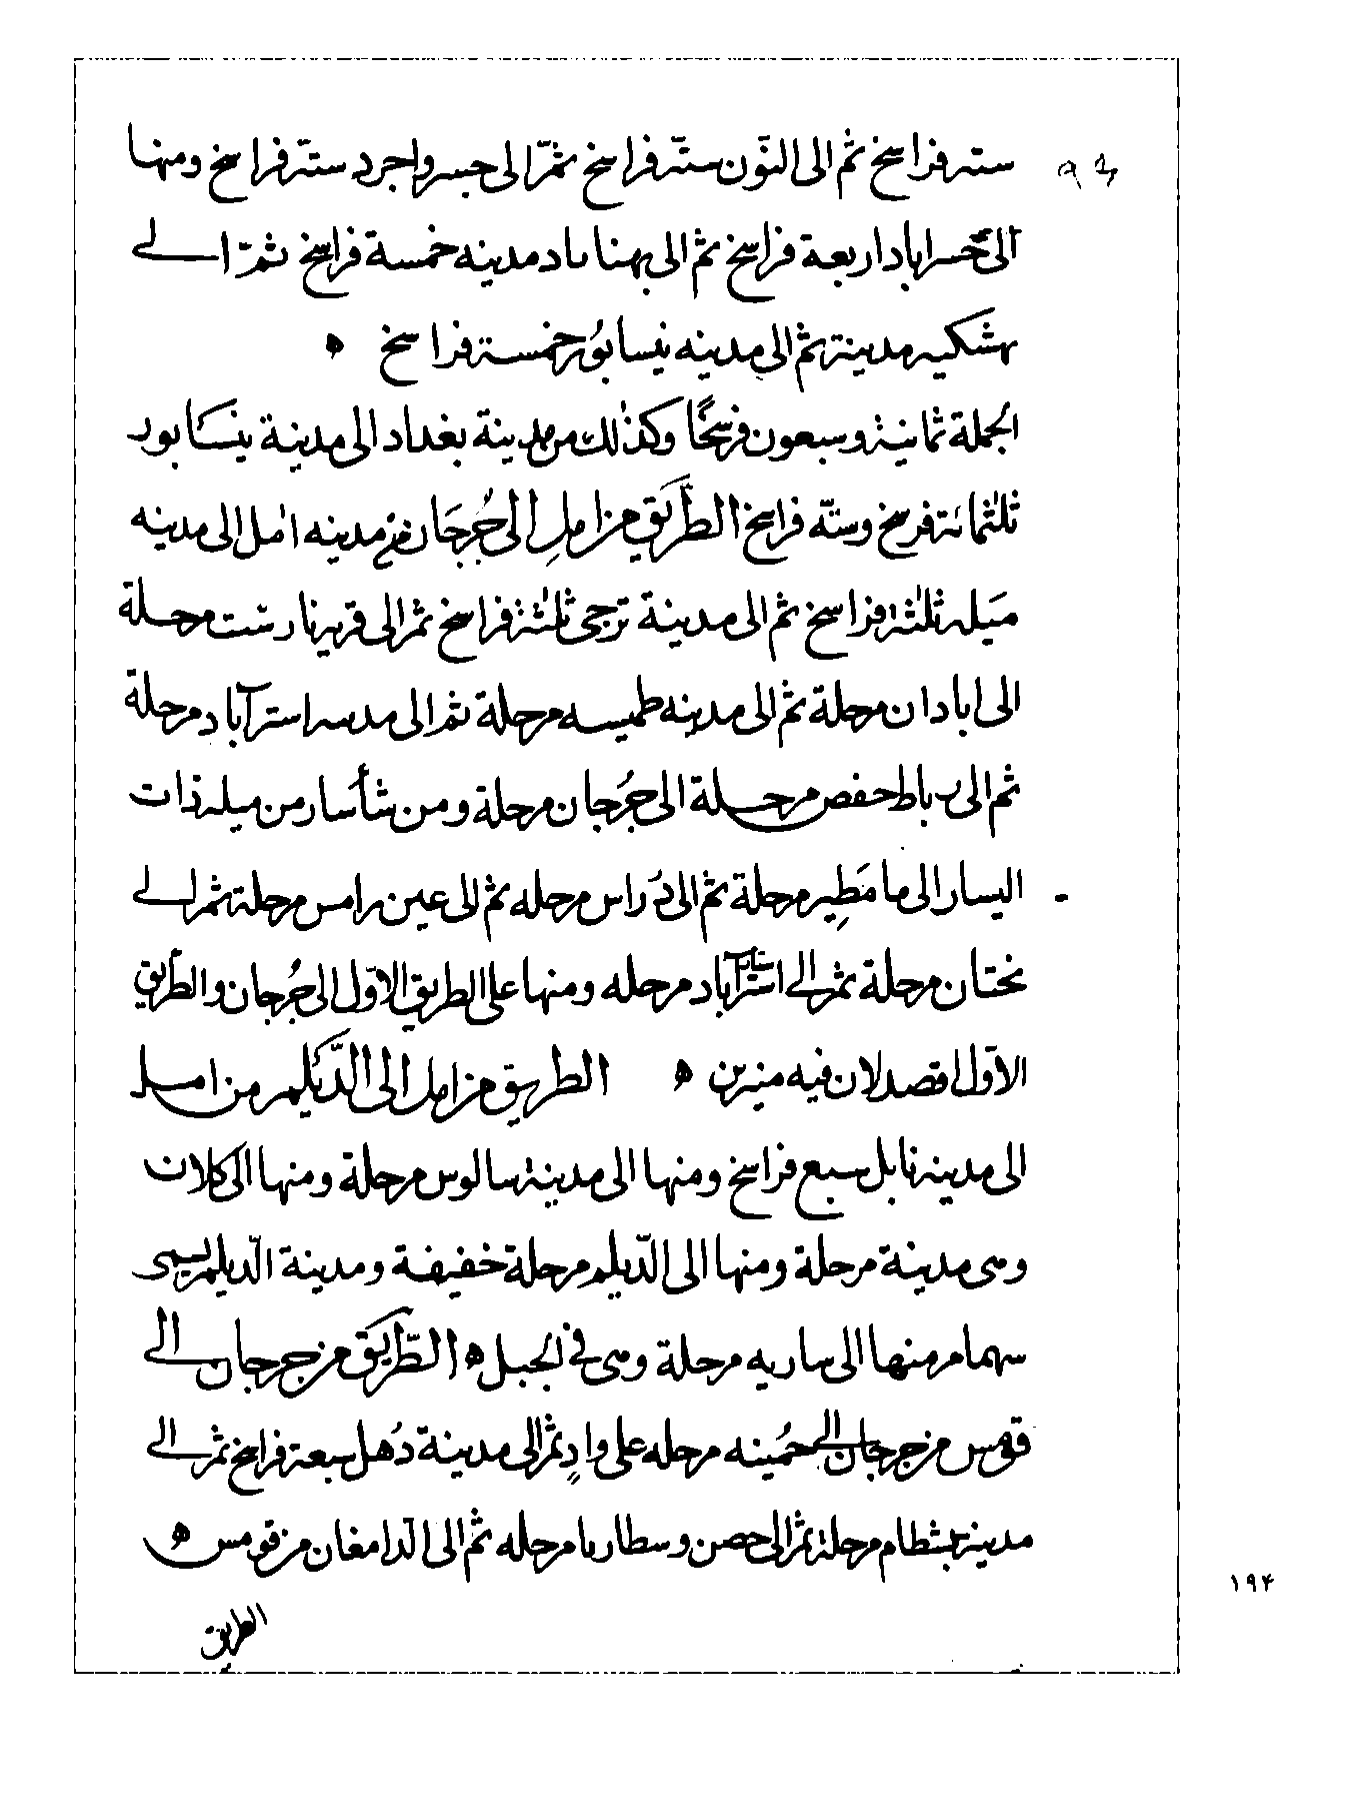 ٩٤
سته فراسخ ثم الى النّون ستّه فراسخ ثمّ الى جسرواجرد ستة فراسخ ومنها
الى خسراباد اربعة فراسخ ثم الى بهناباد مدينه خمسة فراسخ ثمّ الى
بهشكيه مدينة ثم الى مدينه نيسابُور خمسة فراسخ ه
الجملة ثمانية وسبعون فرسخًا وكذلك من مدينة بغداد الى مدينة نيسابور
ثلثمائة فرسخ وستّه فراسخ الطّريق من امل الى جُرجَان من مدينه امل الى مدينه
مَيله ثلثة فراسخ ثم الى مدينة ترجى ثلثة فراسخ ثم الى قريه نارشت مرحلة
الى ابادان مرحلة ثم الى مدينه طميسه مرحلة ثم الى مدينه استرآباد مرحلة
ثم الى رباط حفص مرحلة الى جُرجان مرحلة ومن شأ سار من ميله ذات
اليسار الى مامَطِير مرحلة ثم الى ... مرحله ثم الى عين رامس مرحلة ثم الى
نختان مرحلة ثم الى استرآباد مرحله ومنها على الطريق الاوّل الى جُرجان والطّريق
الاوّل اقصد لان فيه منبرين ه الطريق من امل الى الدَّيلم من امل
الى مدينه نابل سبع فراسخ ومنها الى مدينة سالوس مرحلة ومنها الى كلان
وهى مدينة مرحلة ومنها الى الدّيلم مرحلة خفيفة ومدينة الدّيلم يسمى
سهمام منها الى ساريه مرحلة وهى فى الجبل ه الطّريق من جرجان الى
قومس من جرجان الى حمُينه مرحله على وادٍ ثم الى مدينة دُهل سبعة فراسخ ثم الى
مدينة بسطام مرحلة ثم الى حصن وسطاربا مرحله ثم الى الدامغان من قومس ه
الطريق
١٩۴